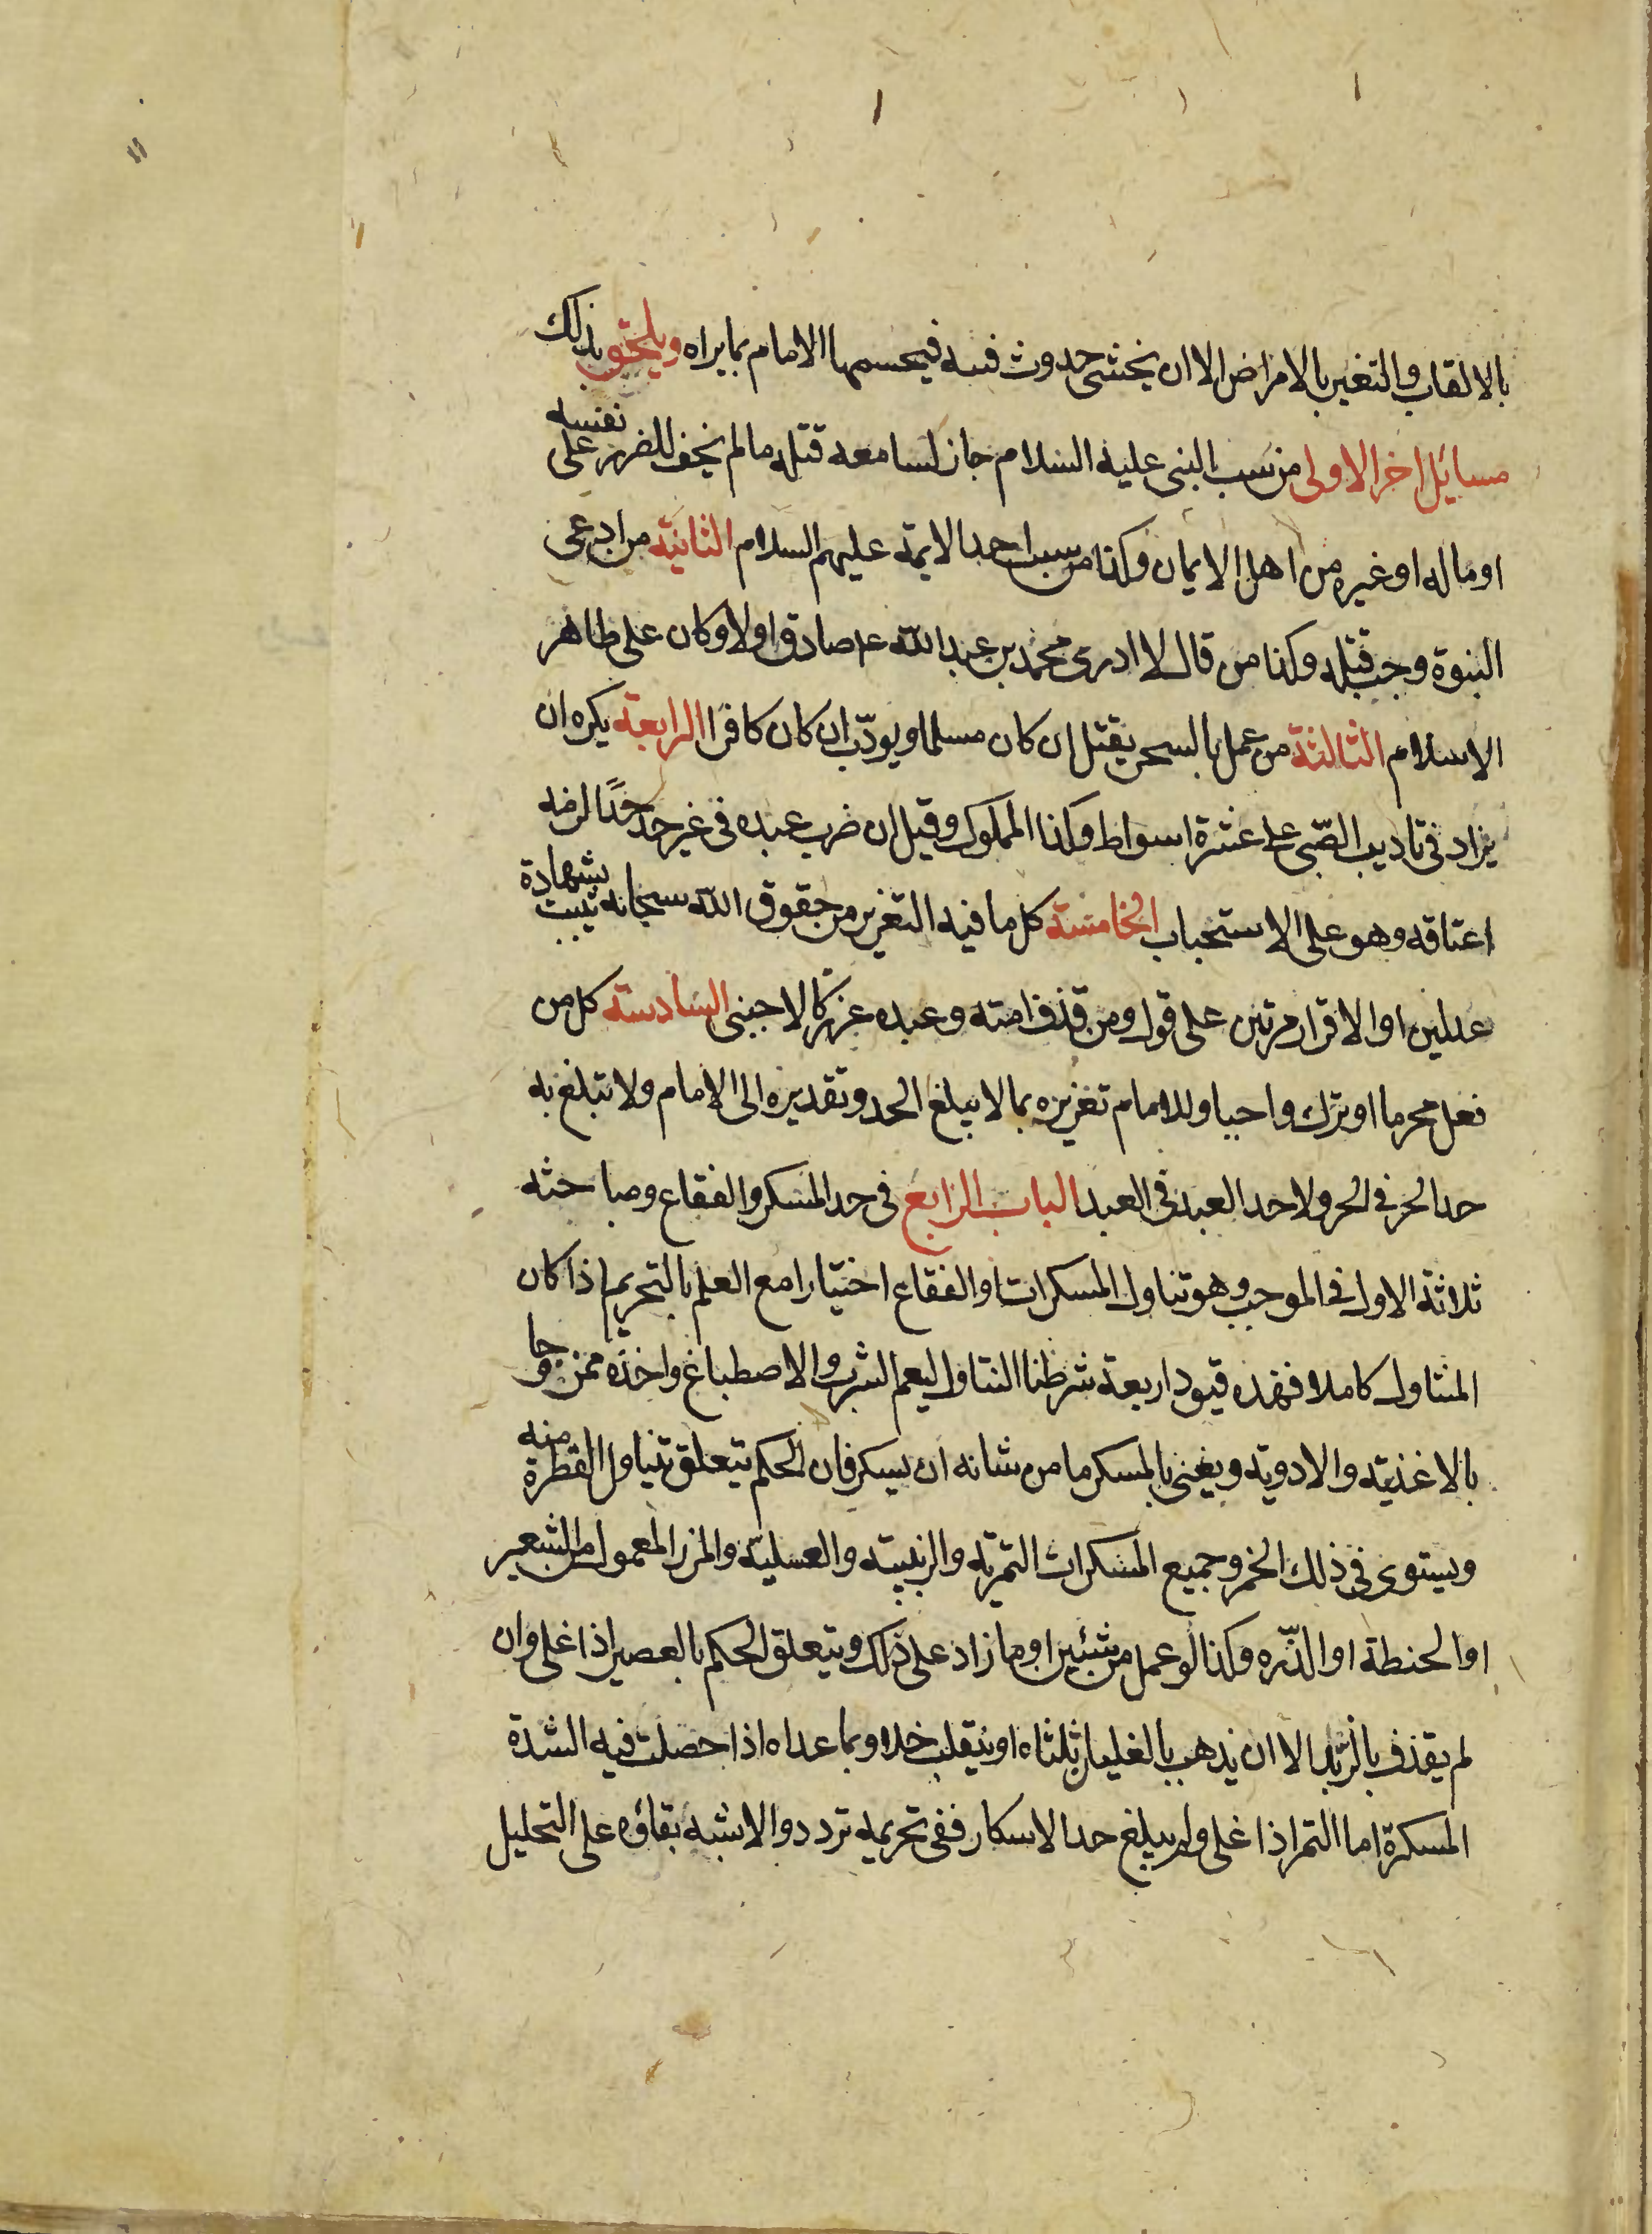 بالالقاب والتغير بالامراض الا ان يخشى حدوث فتنه فيحسمها الامام بما يراه ويلحق بذلك
مسايل اخر الاولى من سب النبى عليه السلام جاز لسامعه قتله ما لم يخف الضرر على نفسه
او ماله او غيره من اهل الايمان وكذا من سب احد الايمة عليهم السلام الثانية من ادعى
النبوة وجب قتله وكذا من قال لا ادرى محمد بن عبد الله عم صادق اولا وكان على ظاهر
الاسلام الثالثة من عمل بالسحر يقتل ان كان مسلما ويودّب ان كان كافرا الرابعة يكره ان
يزاد فى تاديب الصّبى على عشرة اسواط وكذا المملوك وقيل ان ضرب عبده فى غير حد حدًا لزمه
اعتاقه وهو على الاستحباب الخامسة كل ما فيه التعزير من حقوق الله سبحانه يثبت بشهادة
عدلين او الاقرار مرتين على قول ومن قذف امته وعبده عزر كالاجنبى السادسة كل من
فعل محرما او ترك واجبا وللامام تعزيره بما لا يبلغ الحد وتقديره الى الامام ولا تبلغ به
حد الحر فى الحر ولا حد العبد فى العبد الباب الرابع فى حد المسكر والفقاع ومباحثه
ثلاثة الاول فى الموجب وهو تناول المسكرات او الفقاع اختيارا مع العلم بالتحريم اذا كان
المتناول كاملا فهذه قيود اربعة شرطنا التناول ليعم الشرب والاصطباغ واخذه ممزوجا
بالاغذية والادوية ويعنى بالمسكر ما من شانه ان يسكر فان الحكم يتعلق بتناول القطرة منه
ويستوى فى ذلك الخمر وجميع المسكرات التمرية والزبيبية والعسلية والمزر المعمول من الشعير
او الحنطة او الذّره وكذا لو عمل من شيئين او ما زاد على ذلك ويتعلق الحكم بالعصير اذا غلى وان
لم يقذف بالزبد الا ان يذهب بالغليان ثلثاه او ينقلب خلا وبما عداه اذا حصلت فيه الشدة
المسكرة اما التمر اذا غلى ولم يبلغ حد الاسكار ففى تحريمه تردد والاشبه بقاؤه على التحليل